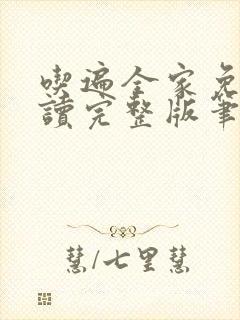 喫遍全家免
讀完整版筆
慧/七里慧